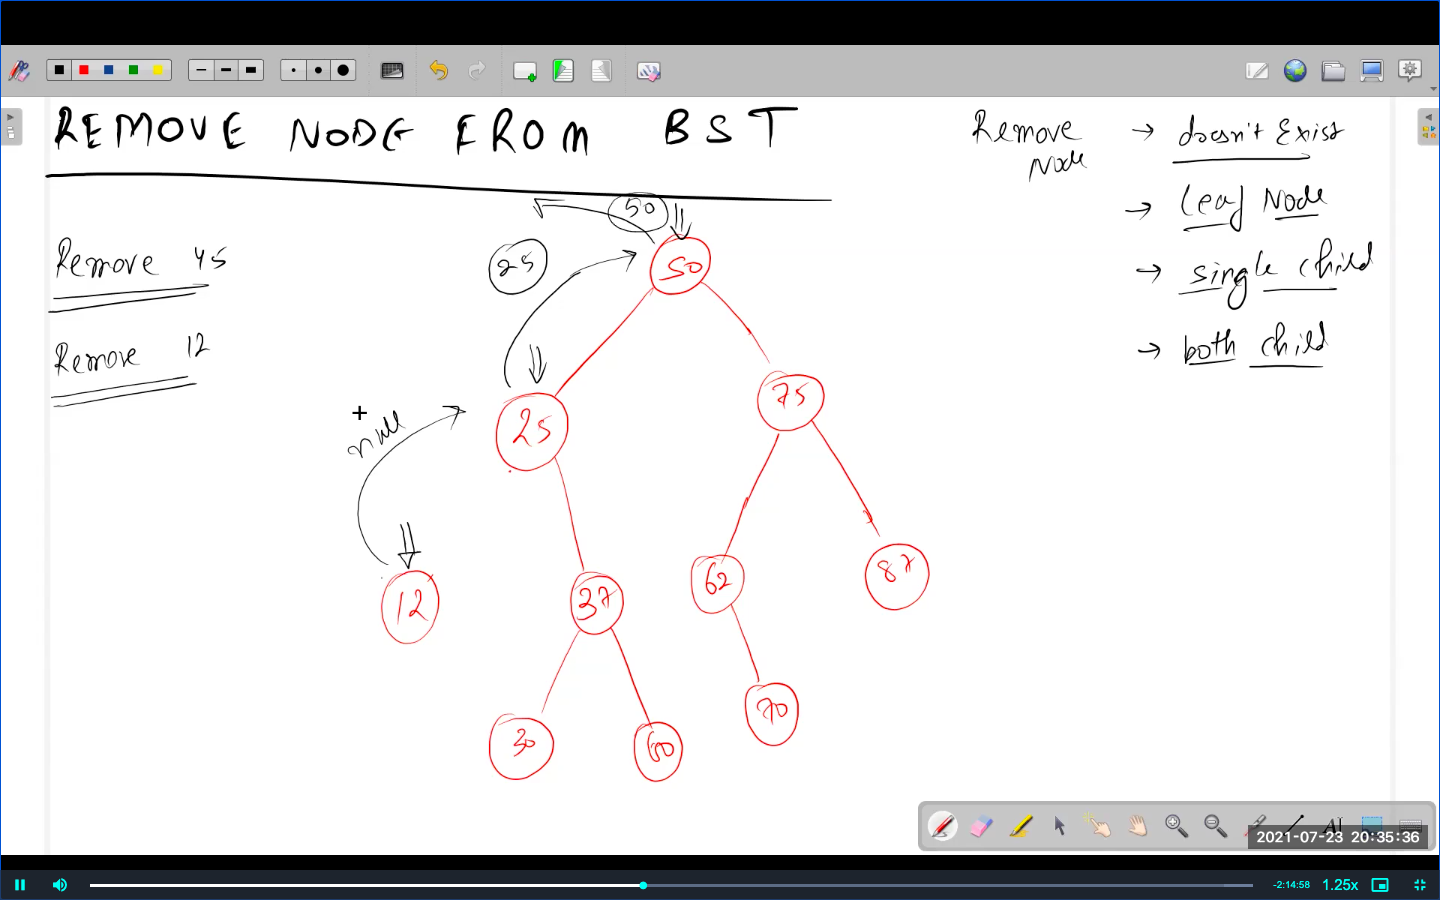 REMOVE NODE FROM BST
Remove Node → doesn't Exist
→ leaf Node
→ single child
→ both child
Remove 45
Remove 12
50
25
50
null
25
75
12
37
62
87
30
60
70
2021-07-23 20:35:36
-2:14:58
1.25x